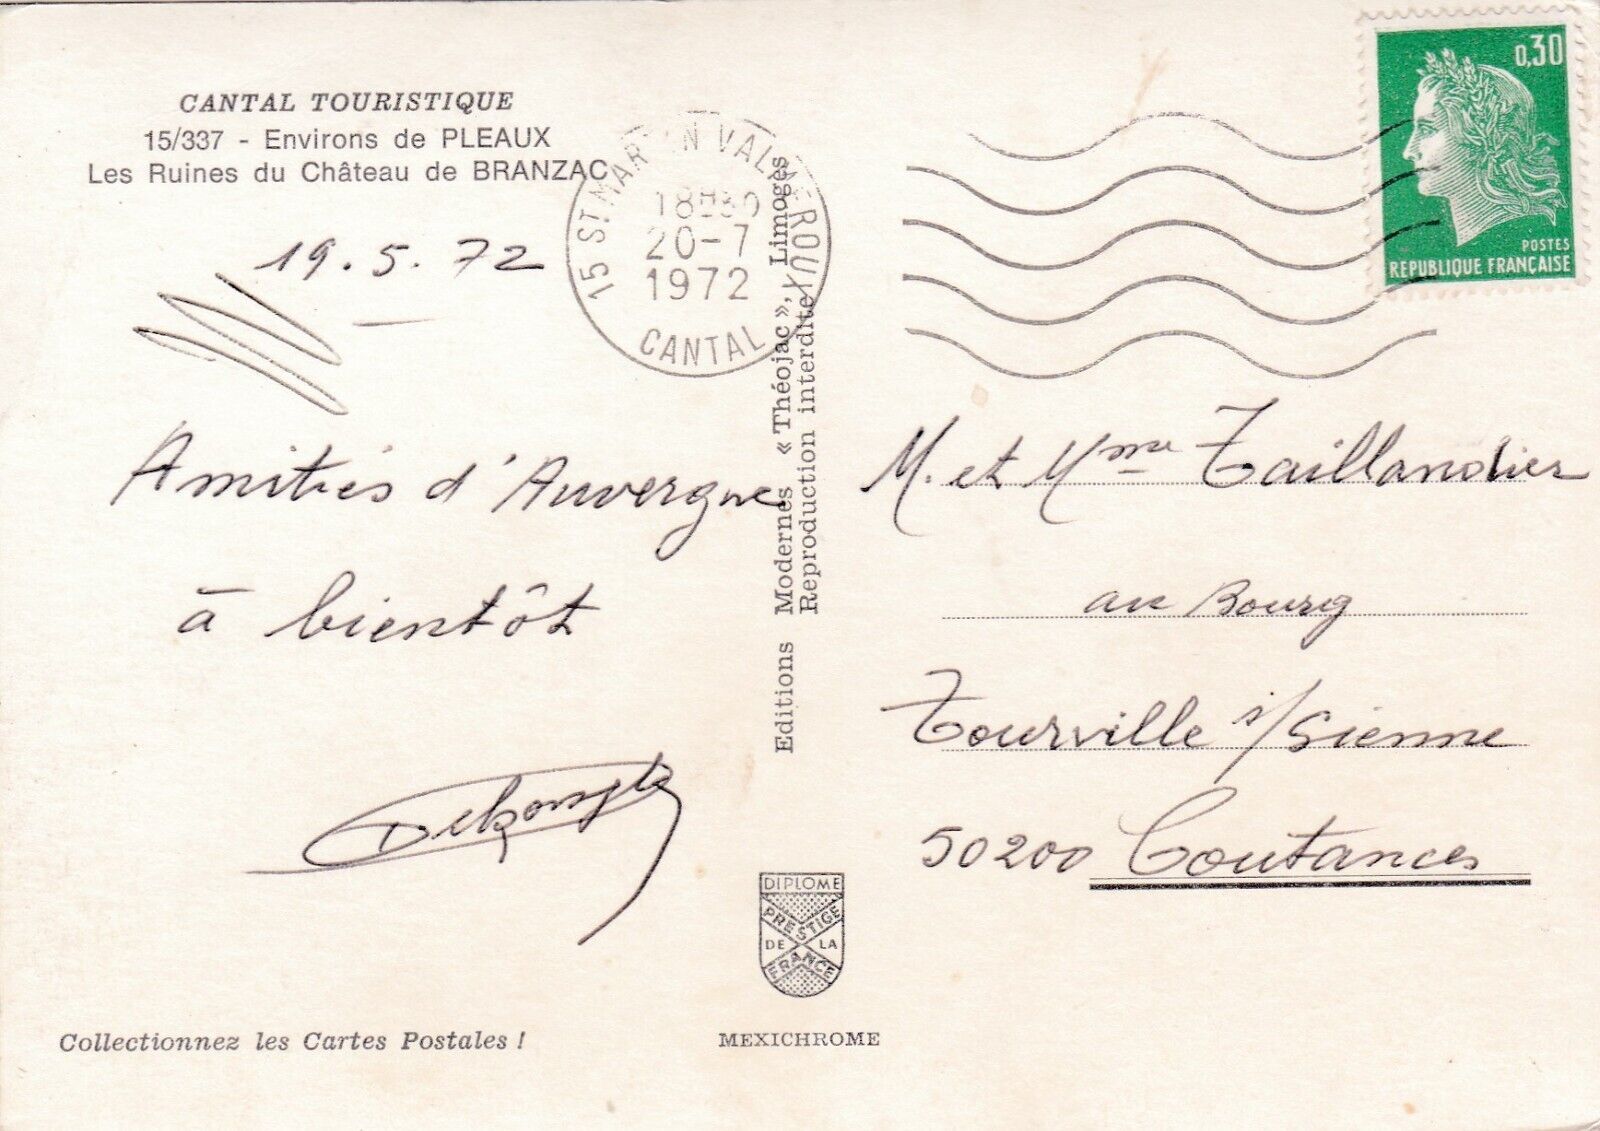 CANTAL TOURISTIQUE
15/337 - Environs de PLEAUX
Les Ruines du Château de BRANZAC
19.5.72
Amitiés d'Auvergne
à bientôt
Collectionnez les Cartes Postales !
15 ST MARTIN VALMEROUX
18H30
20-7
1972
CANTAL
Editions Modernes « Théojac », Limoges
Reproduction interdite
DIPLOME
PRESTIGE
DE LA
FRANCE
MEXICHROME
0,30
POSTES
REPUBLIQUE FRANÇAISE
M. et Mme Taillandier
au Bourg
Tourville s/Sienne
50200 Coutances